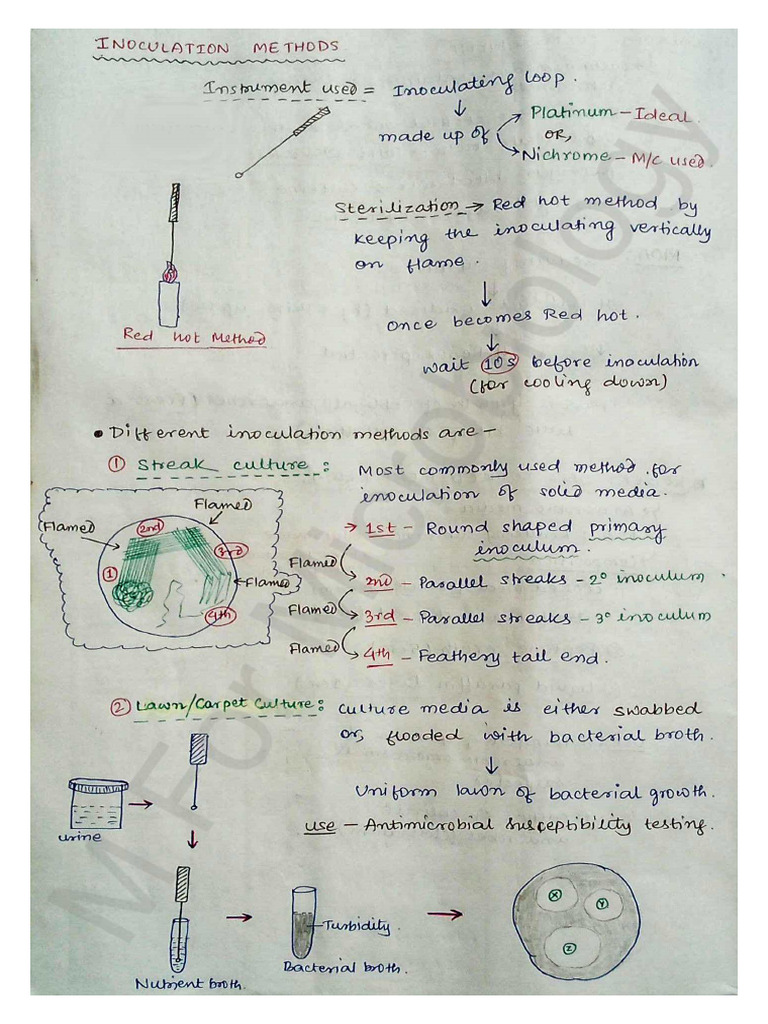 INOCULATION METHODS
Instrument used = Inoculating loop.
↓
made up of → Platinum - Ideal.
OR,
→ Nichrome - M/C used.
Sterilization → Red hot method by
keeping the inoculating vertically
on flame.
↓
Once becomes Red hot.
↓
wait 10s before inoculation
(for cooling down)
Red hot Method
• Different inoculation methods are -
① Streak culture: Most commonly used method for
inoculation of solid media.
Flamed
Flamed
2nd
3rd
Flamed
1
4th
→ 1st - Round shaped primary
inoculum.
Flamed
2nd - Parallel streaks - 2° inoculum.
Flamed
3rd - Parallel streaks - 3° inoculum
Flamed
4th - Feathery tail end.
② Lawn/Carpet Culture: culture media is either swabbed
or, flooded with bacterial broth.
↓
Uniform lawn of bacterial growth.
use - Antimicrobial susceptibility testing.
urine
Nutrient broth.
Turbidity.
Bacterial broth.
X
Y
Z
M For Microbiology